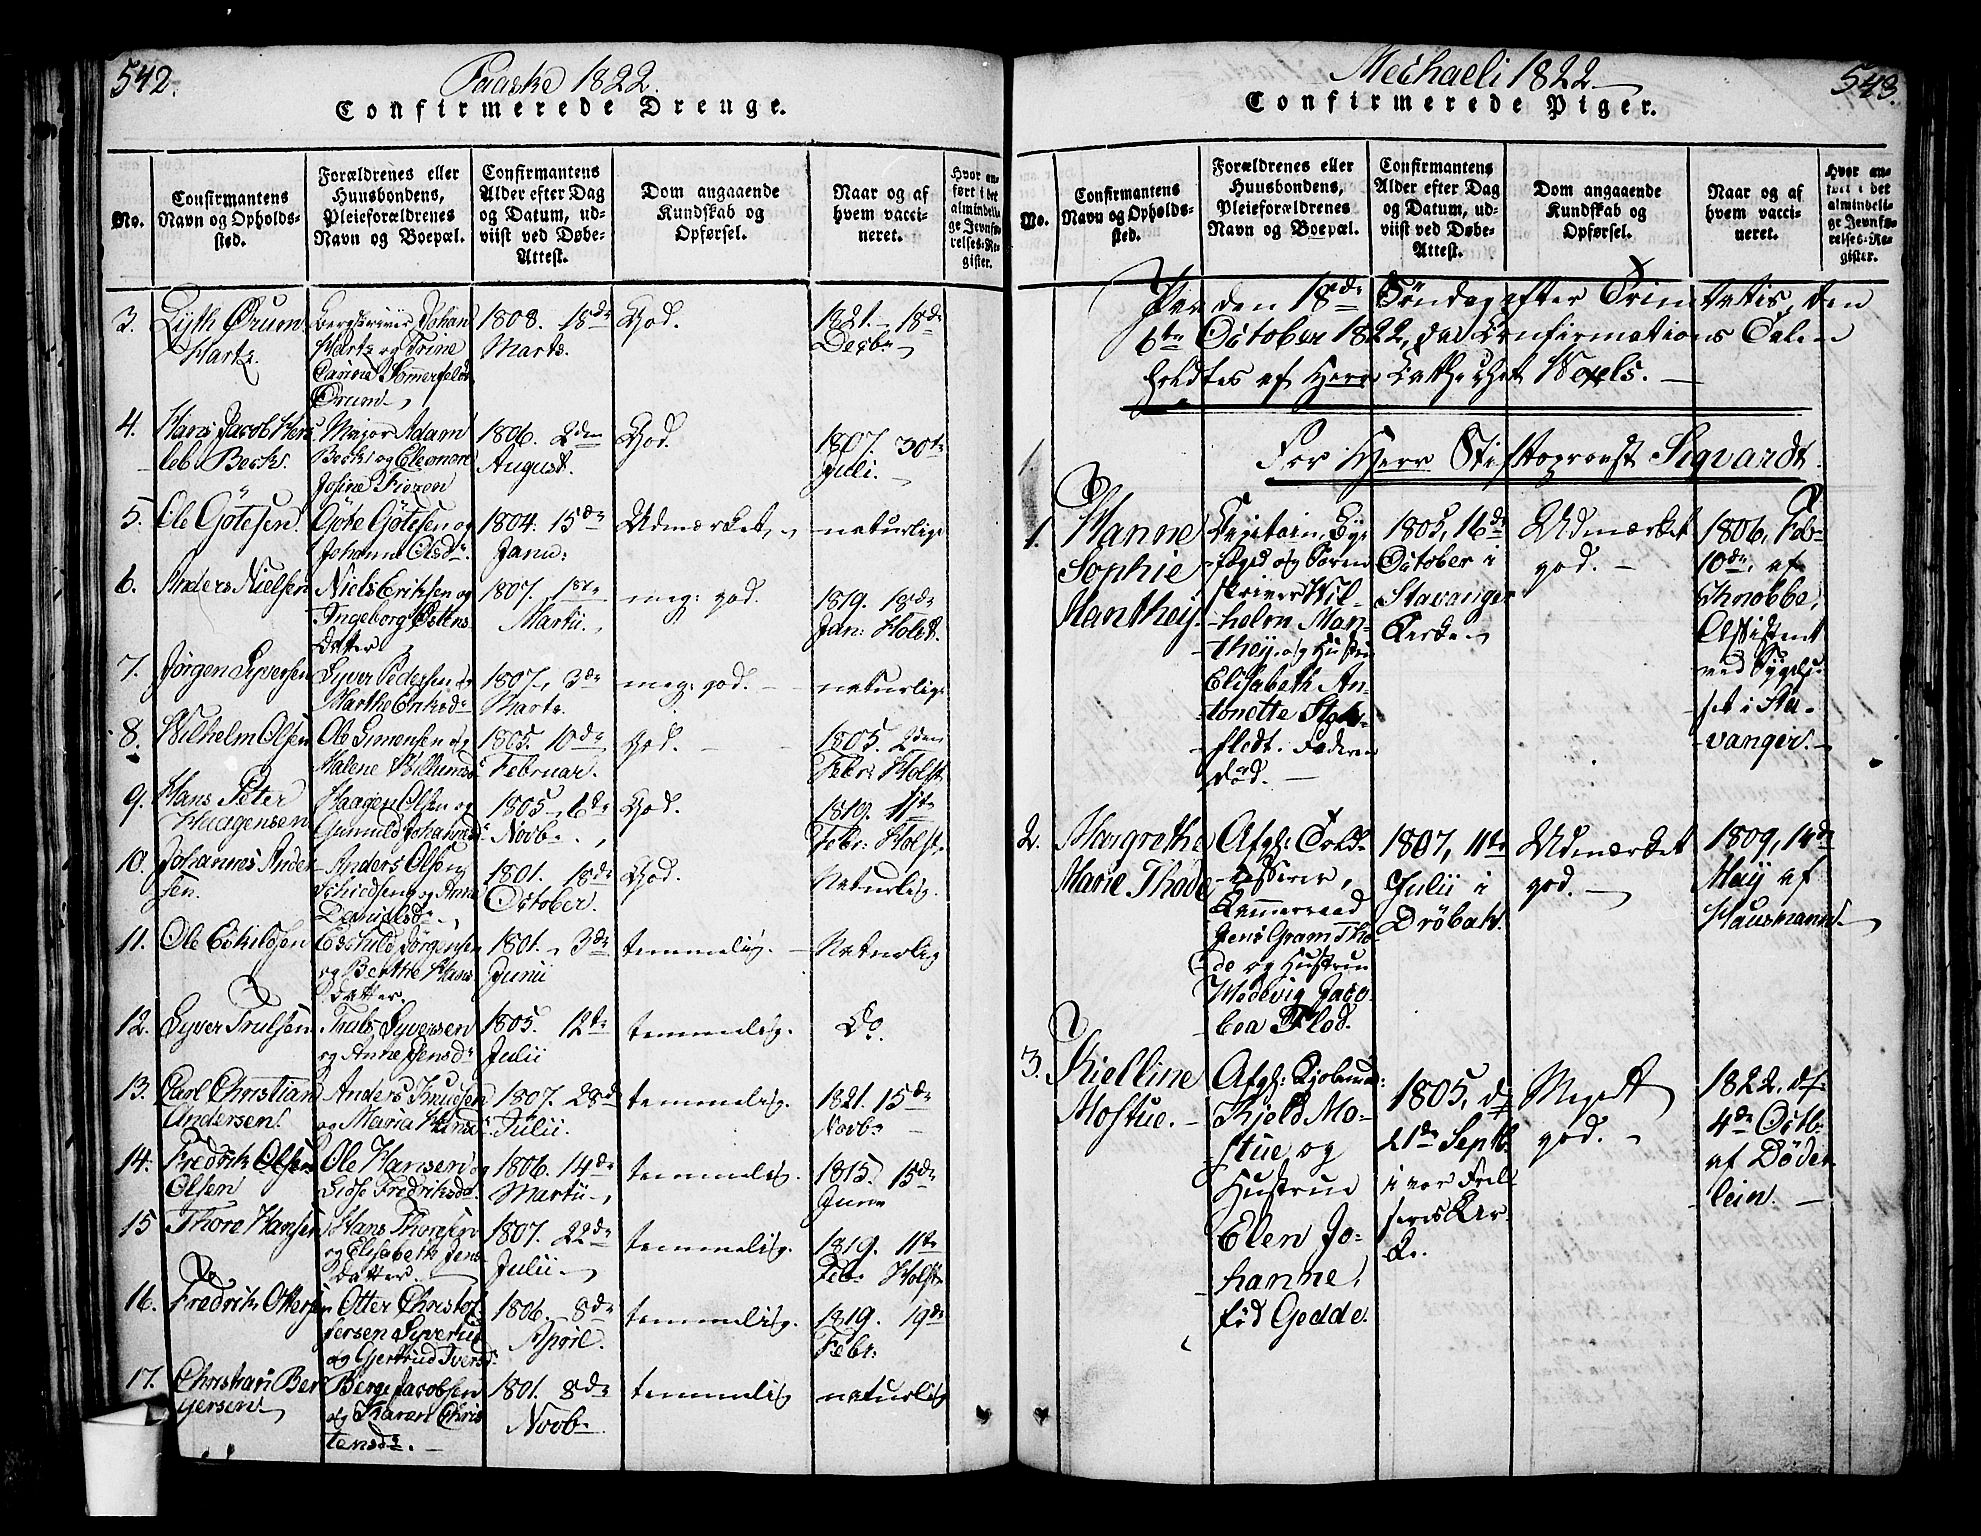 542.
Paaske 1822.
Confirmerede Drenge.
No.
Confirmantens
Navn og Opholds-
sted.
Forældrenes eller
Huusbondens,
Pleieforældrenes
Navn og Boepæl.
Confirmantens
Alder efter Dag
og Datum, ud-
viist ved Døbe-
Attest.
Dom angaaende
Kundskab og
Opførsel.
Naar og af
hvem vacci-
neret.
Hvor an-
ført i det
almindeli-
ge Jevnfø-
relses-Re-
gister.
3.
Lyth Ørum
Hartz.
Bergskriver Johan
Hartz og Trine
Carine Sommerfeldt
Ørum
1808. 18de
Marts.
God.
1821. 18de
Decbr
4.
Hans Jacob Hers
leb Beck.
Major Adam
Beck og Eleonore
Josine
1806. 2den
August.
God.
1807. 30te
Juli.
5.
Ole Götesen.
Göte Götesen og
Johanne Olsdr
1804. 15de
Janu:
Udmærket
naturlig
6.
Anders Nielsen
Niels Eriksen og
Ingeborg Ostens
datter
1807. 18de
Martii
meg: god.
1819. 18de
Jan: Holst.
7.
Jörgen Syversen
Syver Pedersen og
Marthe Eriksdr
1807. 3de
Marts.
meg: god.
naturlig
8.
Wilhelm Olsen
Ole Simensen og
Malene Willumsdr
1805. 10de
Februar.
god.
1805. 2den
Febr: Holst
9.
Hans Peter
Haagensen
Haagen Olsen og
Gunnild Johannesdr
1805. 6te
Novbr
God.
1819. 11te
Febr: Holst
10.
Johannes Ander
sen.
Anders Olsen
og Anne
Davidsdr
1801. 18de
October.
God.
Naturlig.
11.
Ole Eskildsen
Eschild Jörgensen
og Berthe Hans
datter.
1801. 3de
Junii
temmelig.
Naturlig
12.
Syver Trulsen
Truls Syversen
og Anne Jensdr
1805. 12te
Julii
temmelig.
Do.
13.
Carl Christian
Andersen.
Anders Knudsen
og Maria Hansdr
1807. 28de
Julii.
temmelig.
1821. 15de
Novbr
14.
Fredrik Olsen
Olsen
Ole Hansen og
Sidse Fredriksdr.
1806. 14de
Martii
temmelig.
1815. 15de
Junii
15
Thore Hansen
Hans Thoresen
og Elisabeth Jens
datter.
1807. 22de
Julii
temmelig.
1819. 11te
Feb: Holst
16.
Fredrik Ottersen
Otter Christof
fersen Syverud
og Gjertrud Iversdr
1806. 8de
April.
temmelig.
1819. 19de
Febr:
17.
Christian Ber
gersen
Berge Jacobsen
og Karen Chris
tensdr.
1801. 8de
Novbr
temmelig
naturlig
543.
Michaeli 1822.
Confirmerede Piger.
No.
Confirmantens
Navn og Opholds-
sted.
Forældrenes eller
Huusbondens,
Pleieforældrenes
Navn og Boepæl.
Confirmantens
Alder efter Dag
og Datum, ud-
viist ved Døbe-
Attest.
Dom angaaende
Kundskab og
Opførsel.
Naar og af
hvem vacci-
neret.
Hvor an-
ført i det
almindeli-
ge Jevnfø-
relses-Re-
gister.
Paa den 18de Söndag efter Trinitatis, den
6te October 1822, da Confirmations Talen
holdtes af Herr Catechet Wexels.
For Herr Stiftsprovst Sigvardt.
1.
Hanne
Sophie
Manthey.
Capitain, By-
foged og Soren
skriver Wil-
helm Man-
they og Hustru
Elisabeth An-
tonette
fledt. Faderen
död.
1805, 16de
October i
Stavanger
Kirke
Udmærket
god.
1806, Feb-
10de, af
Assistent
ved Sygehu-
set i Sta-
vanger.
2.
Margrethe
Marie Thode
Afgl: Told-
casserer,
Kammerraad
Jens Gram Tho-
de og Hustrue
Hedevig Jaco-
bea Flod.
1807, 11te
Julii i
Dröbak.
Udmærket
god.
1809, 14de
May af
Hausmann
3.
Kielline
Mostue.
Afgl: Kjöbmd:
Kjeld Mo-
stue og
Hustrue
Elen Jo-
hanne,
föd Gedde.
1805, d
21de Septb.
i vor Frel
seris Kir-
ke.
Meget
god.
1822, d
4de Octb.
af Döder
lein.